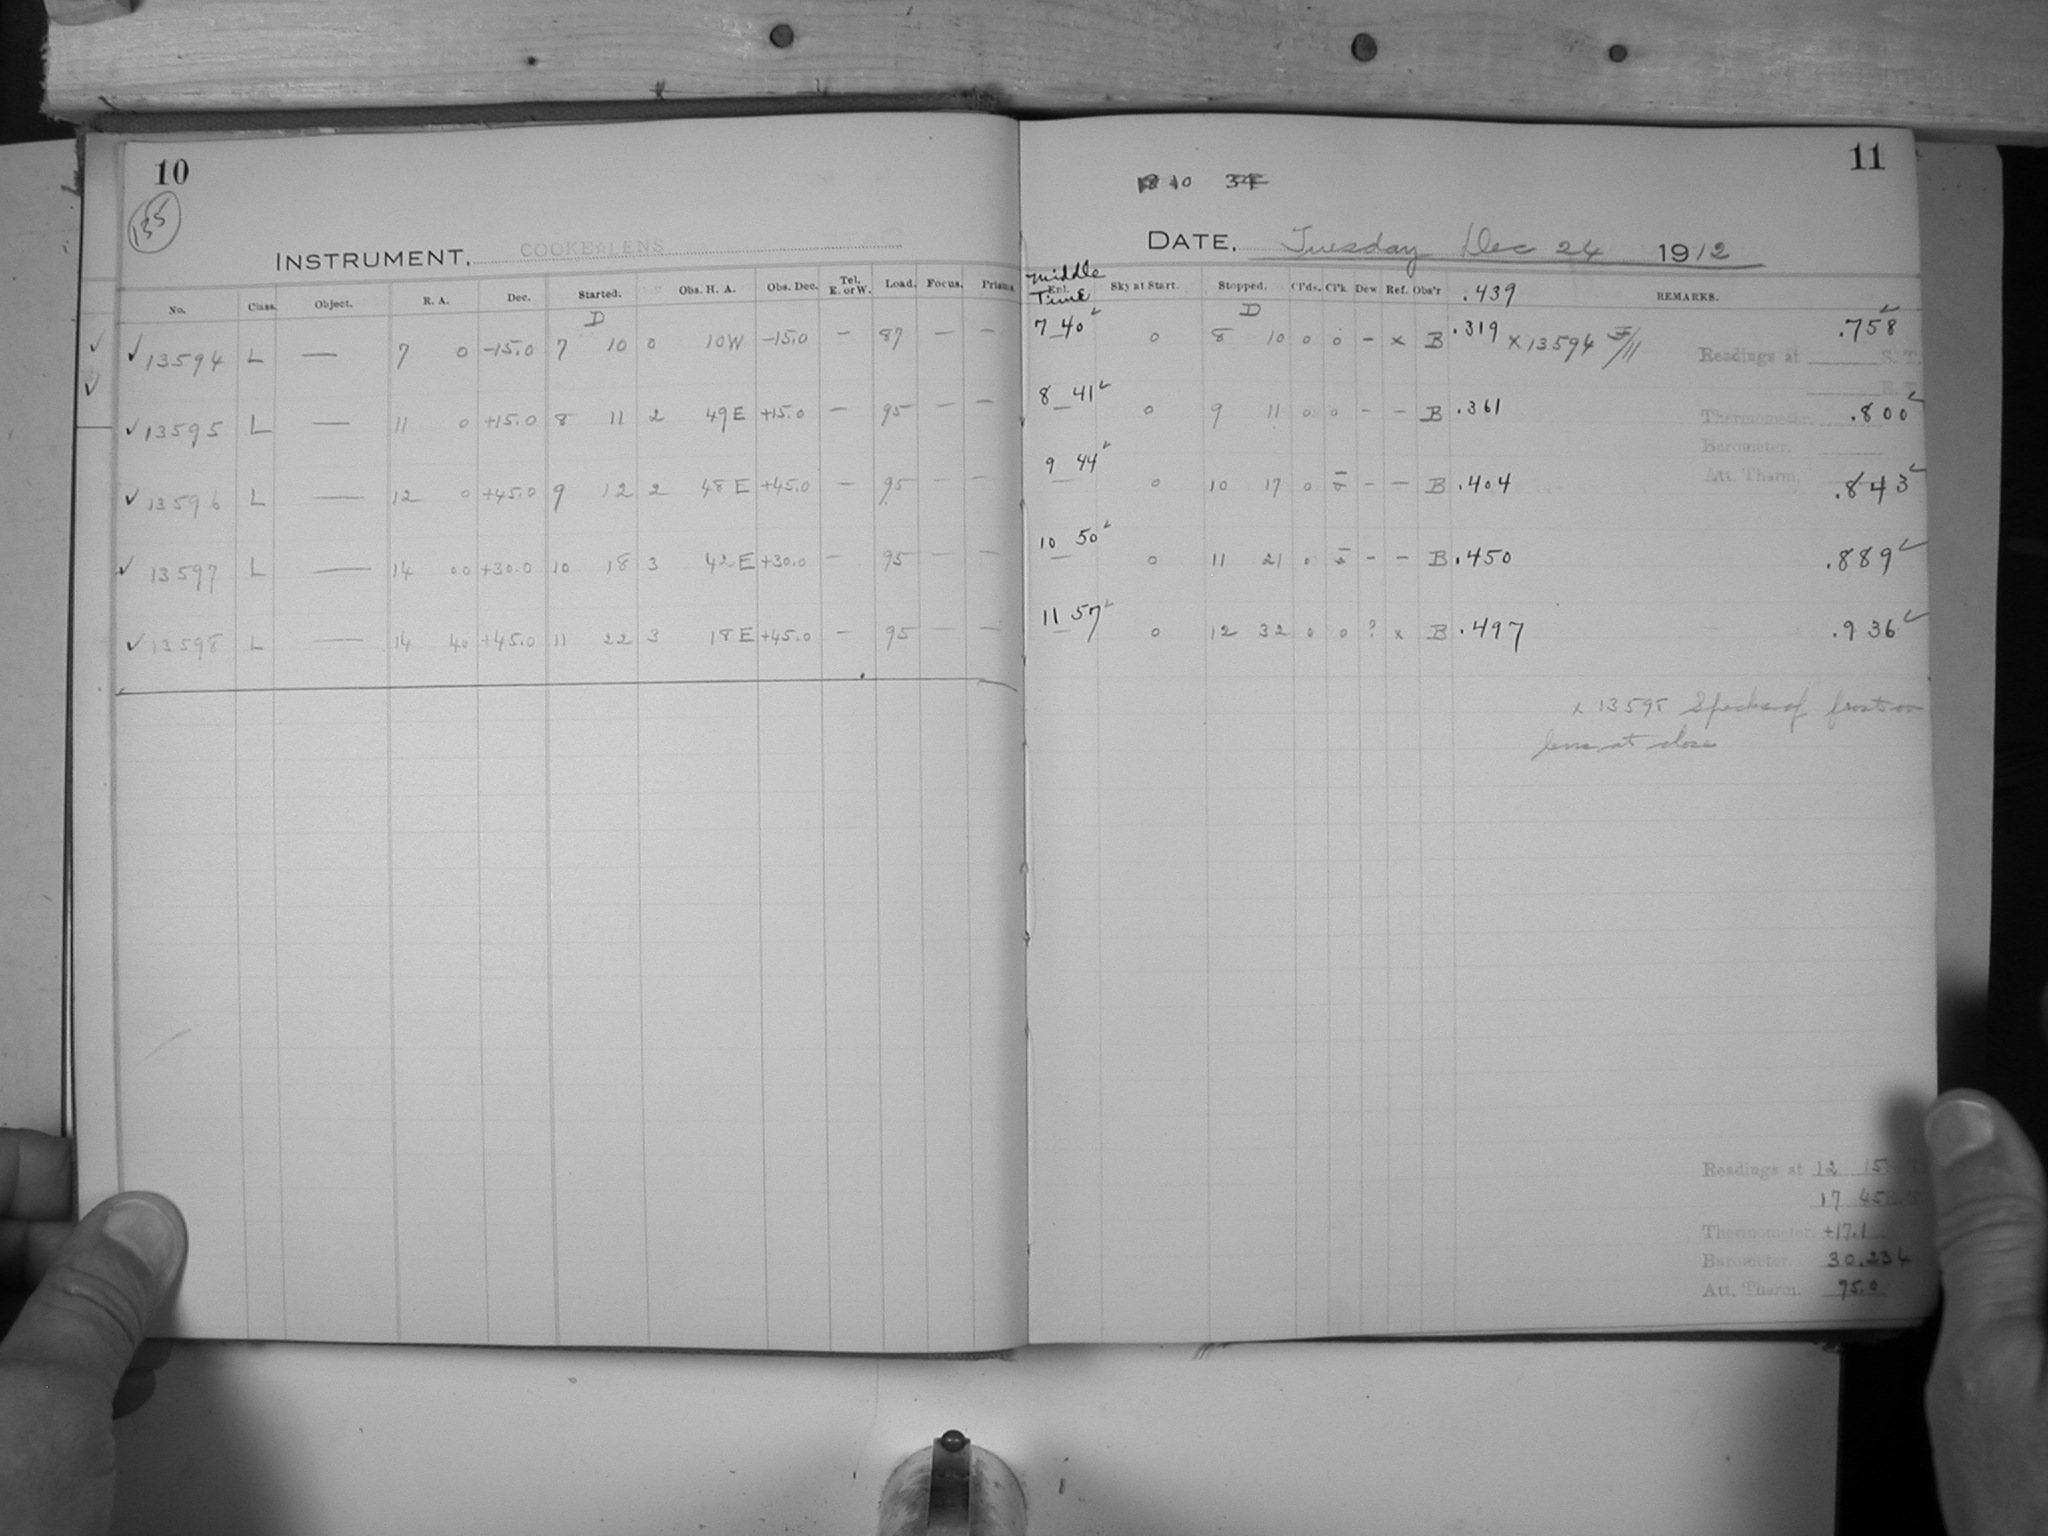 10
135
INSTRUMENT. COOKE LENS
No. Class. Object. R. A. Dec. Started. Obs. H. A. Obs. Dec. Tel. E. or W. Load. Focus. Prisms.
D
✓ 13594 L — 7 0 -15.0 7 10 0 10W -15.0 — 87 — —
✓ 13595 L — 11 0 +15.0 8 11 2 49E +15.0 — 95 — —
✓ 13596 L — 12 0 +45.0 9 12 2 48E +45.0 — 95 — —
✓ 13597 L — 14 00 +30.0 10 18 3 42E +30.0 — 95 — —
✓ 13598 L — 14 40 +45.0 11 22 3 18E +45.0 — 95 — —
11
10
DATE. Tuesday Dec 24 1912
Middle Time
Enl. Sky at Start. Stopped. Cl'ds. Cl'k Dew Ref. Obs'r .439 REMARKS.
D
7 40 0 8 10 0 0 - x B .319 x 13594 .758
Readings at S. T.
8 41 0 9 11 0 0 - - B .361 .800
Thermometer.
Barometer.
9 44 0 10 17 0 - - B .404 .843
Att. Therm.
10 50 0 11 21 0 - - B .450 .889
11 57 0 12 32 0 0 ? x B .497 .936
x 13598 Specks of frost on
lens at close
Readings at 12 15
17 45
Thermometer. +17.1
Barometer. 30.234
Att. Therm. 75.0